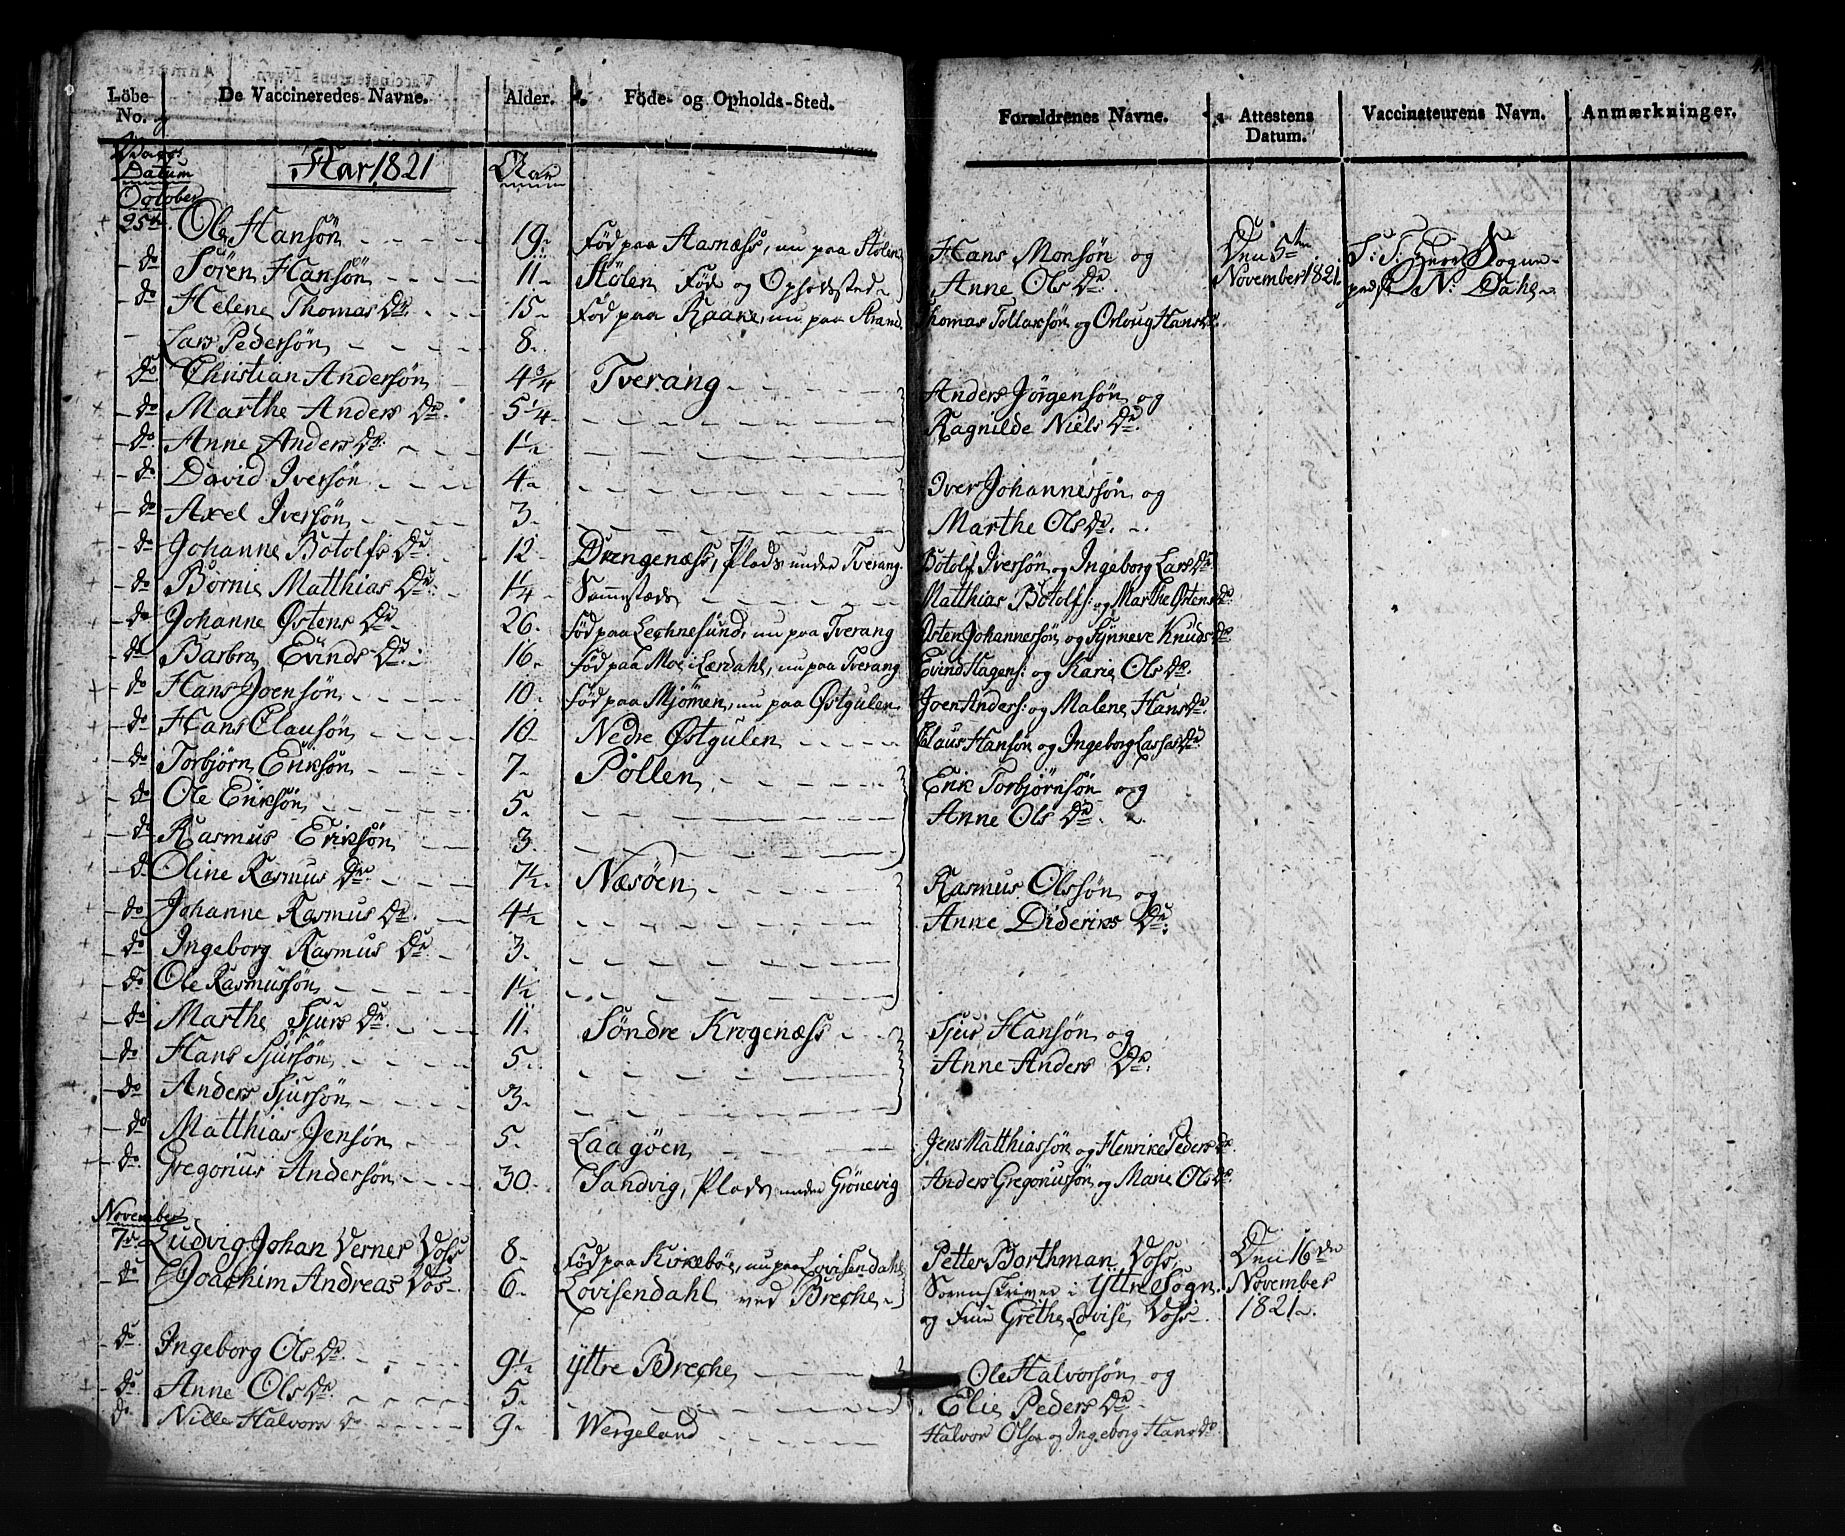 Löbe No. De Vaccineredes Navne. Alder. Föde- og Opholds-Sted. Forældrenes Navne. Attestens Datum. Vaccinateurens Navn. Anmærkninger.
Datum Aar 1821 Aar
October
25de Ole Hansön 19. Föd paa Aasnæss, nu paa Stölen Hans Monsön og Den 5te S: T: Herr Sogne-
do Sören Hansön 11. Stölen Föd og Opholdssted. Anne Ols Dr. November 1821. præst N. Dahl.
do Helene Thomas Dr. 15. Föd paa Kaake, nu paa Strand. Thomas Tollaksön og Orloug Hans Dr.
Lars Pedersön 8.
do Christian Andersön 4 3/4 Tverang Anders Jörgensön og
do Marthe Anders Dr. 5 1/4 Ragnilde Niels Dr.
do Anne Anders Dr. 1 1/2
do David Iversön 4. Iver Johannessön og
do Axel Iversön 3. Marthe Ols Dr.
do Johanne Botolfs Dr. 12. Drengenæss, Plads under Tverang. Botolf Iversön og Ingeborg Lars Dr
do Börnie Matthias Dr. 1 1/4 Sammestæds Matthias Botolfs: og Marthe Østens Dr.
do Johanne Østens Dr. 26. Föd paa Lechnesund, nu paa Tverang Østen Johannessön og Synneve Knuds Dr
do Barbra Evinds Dr. 16. Föd paa Moe i Lærdahl, nu paa Tverang Evind Hagens: og Karie Ols Dr.
do Hans Joensön 10. Föd paa Mjömen, nu paa Østgulen Joen Anders: og Malene Hans Dr.
do Hans Clausön 10. Nedre Østgulen Claus Hansön og Ingeborg Lasses Dr
do Torbjørn Eriksön 7. Pollen Erik Torbjørnsön og
do Ole Eriksön 5. Anne Ols Dr.
do Rasmus Eriksön 3.
do Oline Rasmus Dr. 7 1/2 Næsöen Rasmus Olssön og
do Johanne Rasmus Dr. 4 1/2 Anne Dideriks Dr.
do Ingeborg Rasmus Dr. 3.
do Ole Rasmussön 1 1/2
do Marthe Sjurs Dr. 11. Söndre Krogenæss Sjur Hansön og
do Hans Sjursön 5. Anne Anders Dr.
do Anders Sjursön 3.
do Matthias Jensön 5. Laagöen Jens Matthiassön og Henrike Peders Dr.
do Gregorius Andersön 30. Sandvig, Plads under Grönevig Anders Gregoriussön og Marie Ols Dr.
November
7de Ludvig Johan Verner Voss 8. Föd paa Kirkeböe, nu paa Lovisendahl Petter Borthman Voss, Den 16de
do Joachim Andreas Voss 6. Lovisendahl ved Breche Sorenskriver i Yttre Sogn November
og Frue Grethe Lovise Voss 1821.
do Ingeborg Ols Dr. 9 1/2 Yttre Breche Ole Halvorsön og
do Anne Ols Dr. 5. Elie Peders Dr.
do Nille Halvors Dr 9. Wergeland Halvor Olsön og Ingeborg Hans Dr.